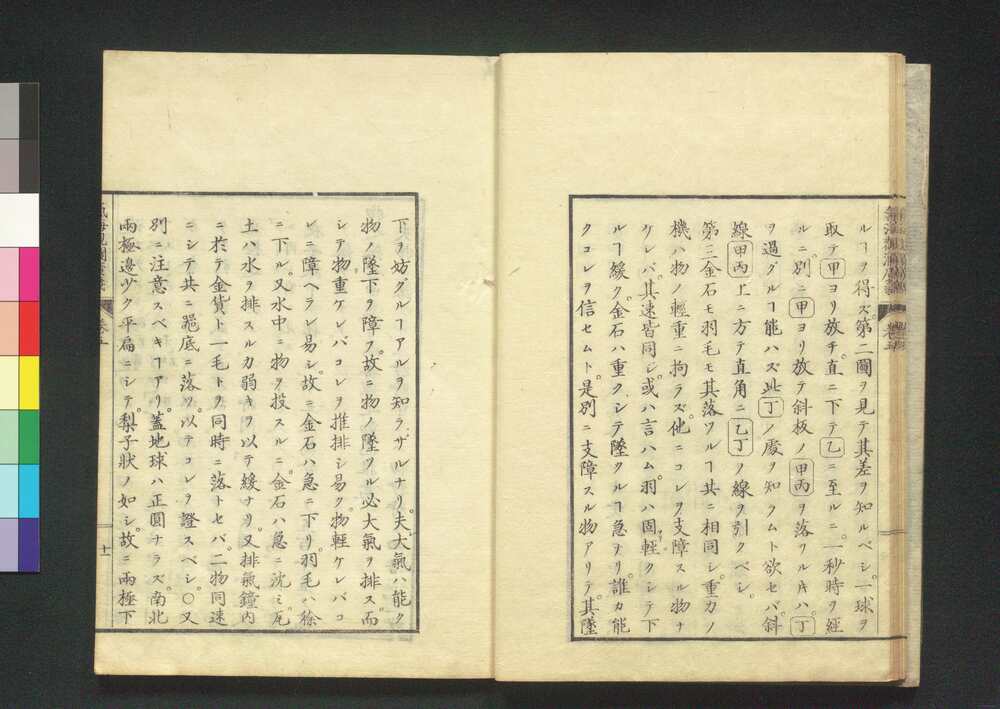 ルヿヲ得ズ。第二圖ヲ見テ其差ヲ知ルベシ。一球ヲ
取テ甲ヨリ放チ直ニ下テ乙ニ至ルニ。一秒時ヲ經
ルニ。別ニ甲ヨリ放テ斜板ノ甲丙ヲ落ツル𪜈ハ。丁
ヲ過グルヿ能ハズ。此丁ノ處ヲ知ラムト欲セバ。斜
線甲丙上ニ方テ直角ニ乙丁ノ線ヲ引クベシ。
第三金石モ羽毛モ其落ツルヿ共ニ相同シ。重力ノ
機ハ物ノ輕重ニ拘ラズ。他ニコレヲ支障スル物ナ
ケレバ。其速皆同シ。或ハ言ハム。羽ハ固輕クシテ下
ルヿ緩ク。金石ハ重クシテ墜クルヿ急ナリ。誰カ能
クコレヲ信セムト。是別ニ支障スル物アリテ其墜
下ヲ妨グルヿアルヲ知ラザルナリ。夫大氣ハ能ク
物ノ墜下ヲ障フ。故ニ物ノ墜ツル必大氣ヲ排ス。而
シテ物重ケレバコレヲ推排シ易ク。物輕ケレバコ
レニ障ヘラレ易シ。故ニ金石ハ急ニ下リ。羽毛ハ徐
ニ下ル。又水中ニ物ヲ投スルニ。金石ハ急ニ沈ミ。瓦
土ハ水ヲ排スル力弱キヲ以テ緩ナリ。又排氣鐘内
ニ於テ金貨ト一毛トヲ同時ニ落トセバ。二物同速
ニシテ共ニ器底ニ落ツ。以テコレヲ證スベシ。〇又
別ニ注意スベキヿアリ。蓋地球ハ正圓ナラズ。南北
兩極邊少ク平扁ニシテ。梨子狀ノ如シ。故ニ兩極下
十一